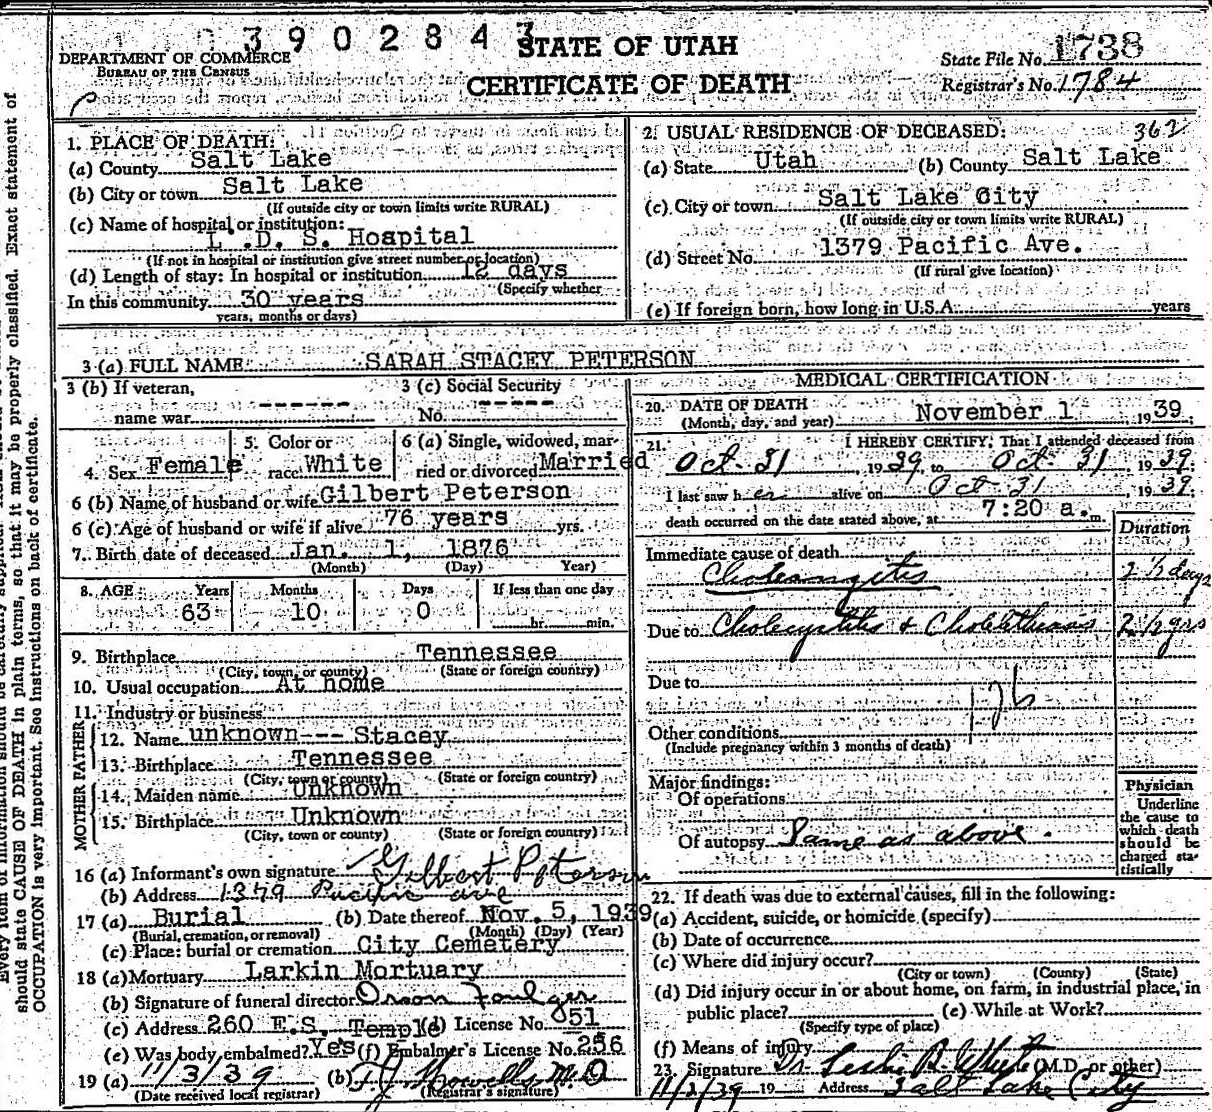 3902843
STATE OF UTAH
CERTIFICATE OF DEATH
DEPARTMENT OF COMMERCE
BUREAU OF THE CENSUS
State File No. 1738
Registrar's No. 1784
1. PLACE OF DEATH:
(a) County Salt Lake
(b) City or town Salt Lake
(If outside city or town limits write RURAL)
(c) Name of hospital or institution:
L .D. S. Hospital
(If not in hospital or institution give street number or location)
(d) Length of stay: In hospital or institution 12 days
(Specify whether
In this community 30 years
years, months or days)
2. USUAL RESIDENCE OF DECEASED: 362
(a) State Utah (b) County Salt Lake
(c) City or town Salt Lake City
(If outside city or town limits write RURAL)
(d) Street No. 1379 Pacific Ave.
(If rural give location)
(e) If foreign born, how long in U.S.A. years
3 (a) FULL NAME SARAH STACEY PETERSON
3 (b) If veteran, name war ------
3 (c) Social Security No. -----
4. Sex Female
5. Color or race White
6 (a) Single, widowed, married or divorced Married
6 (b) Name of husband or wife Gilbert Peterson
6 (c) Age of husband or wife if alive 76 years yrs.
7. Birth date of deceased Jan. 1, 1876
(Month) (Day) Year)
8. AGE Years Months Days If less than one day
63 10 0 hr. min.
9. Birthplace Tennessee
(City, town, or county) (State or foreign country)
10. Usual occupation At home
11. Industry or business
FATHER
12. Name unknown--- Stacey
13. Birthplace Tennessee
(City, town or county) (State or foreign country)
MOTHER
14. Maiden name Unknown
15. Birthplace Unknown
(City, town or county) (State or foreign country)
16 (a) Informant's own signature Gilbert Peterson
(b) Address 1379 Pacific ave
17 (a) Burial (b) Date thereof Nov. 5, 1939
(Burial, cremation, or removal) (Month) (Day) (Year)
(c) Place: burial or cremation City Cemetery
18 (a) Mortuary Larkin Mortuary
(b) Signature of funeral director Orson Foulger
(c) Address 260 E.S. Temple (d) License No. 51
(e) Was body embalmed? Yes (f) Embalmer's License No. 256
19 (a) 11/3/39 (b) T J Howells M.D
(Date received local registrar) (Registrar's signature)
MEDICAL CERTIFICATION
20. DATE OF DEATH November 1 1939
(Month, day, and year)
21. I HEREBY CERTIFY, That I attended deceased from
Oct. 31, 1939 to Oct. 31, 1939
I last saw her alive on Oct 31, 1939
death occurred on the date stated above, at 7:20 a. m.
Duration
Immediate cause of death
Choleangitis 2 1/2 days
Due to Cholecystitis & Cholelithiasis 2 1/2 yrs
Due to
126
Other conditions
(Include pregnancy within 3 months of death)
Major findings:
Of operations
Of autopsy Same as above.
Physician
Underline
the cause to
which death
should be
charged sta-
tistically
22. If death was due to external causes, fill in the following:
(a) Accident, suicide, or homicide (specify)
(b) Date of occurrence
(c) Where did injury occur?
(City or town) (County) (State)
(d) Did injury occur in or about home, on farm, in industrial place, in
public place? (e) While at Work?
(Specify type of place)
(f) Means of injury
23. Signature Dr. Leslie B. White (M.D. or other)
11/2/39 19 Address Salt Lake City
should state CAUSE OF DEATH in plain terms, so that it may be properly classified. Exact statement of
OCCUPATION is very important. See instructions on back of certificate.